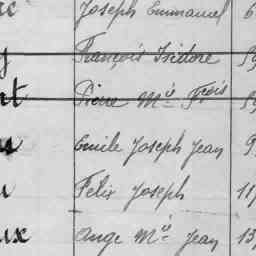 Joseph Emmanuel 6
François Isidore
Pierre Mie Fçois
Emile Joseph Jean 9
Felix Joseph 11
ux Ange Mie Jean 13